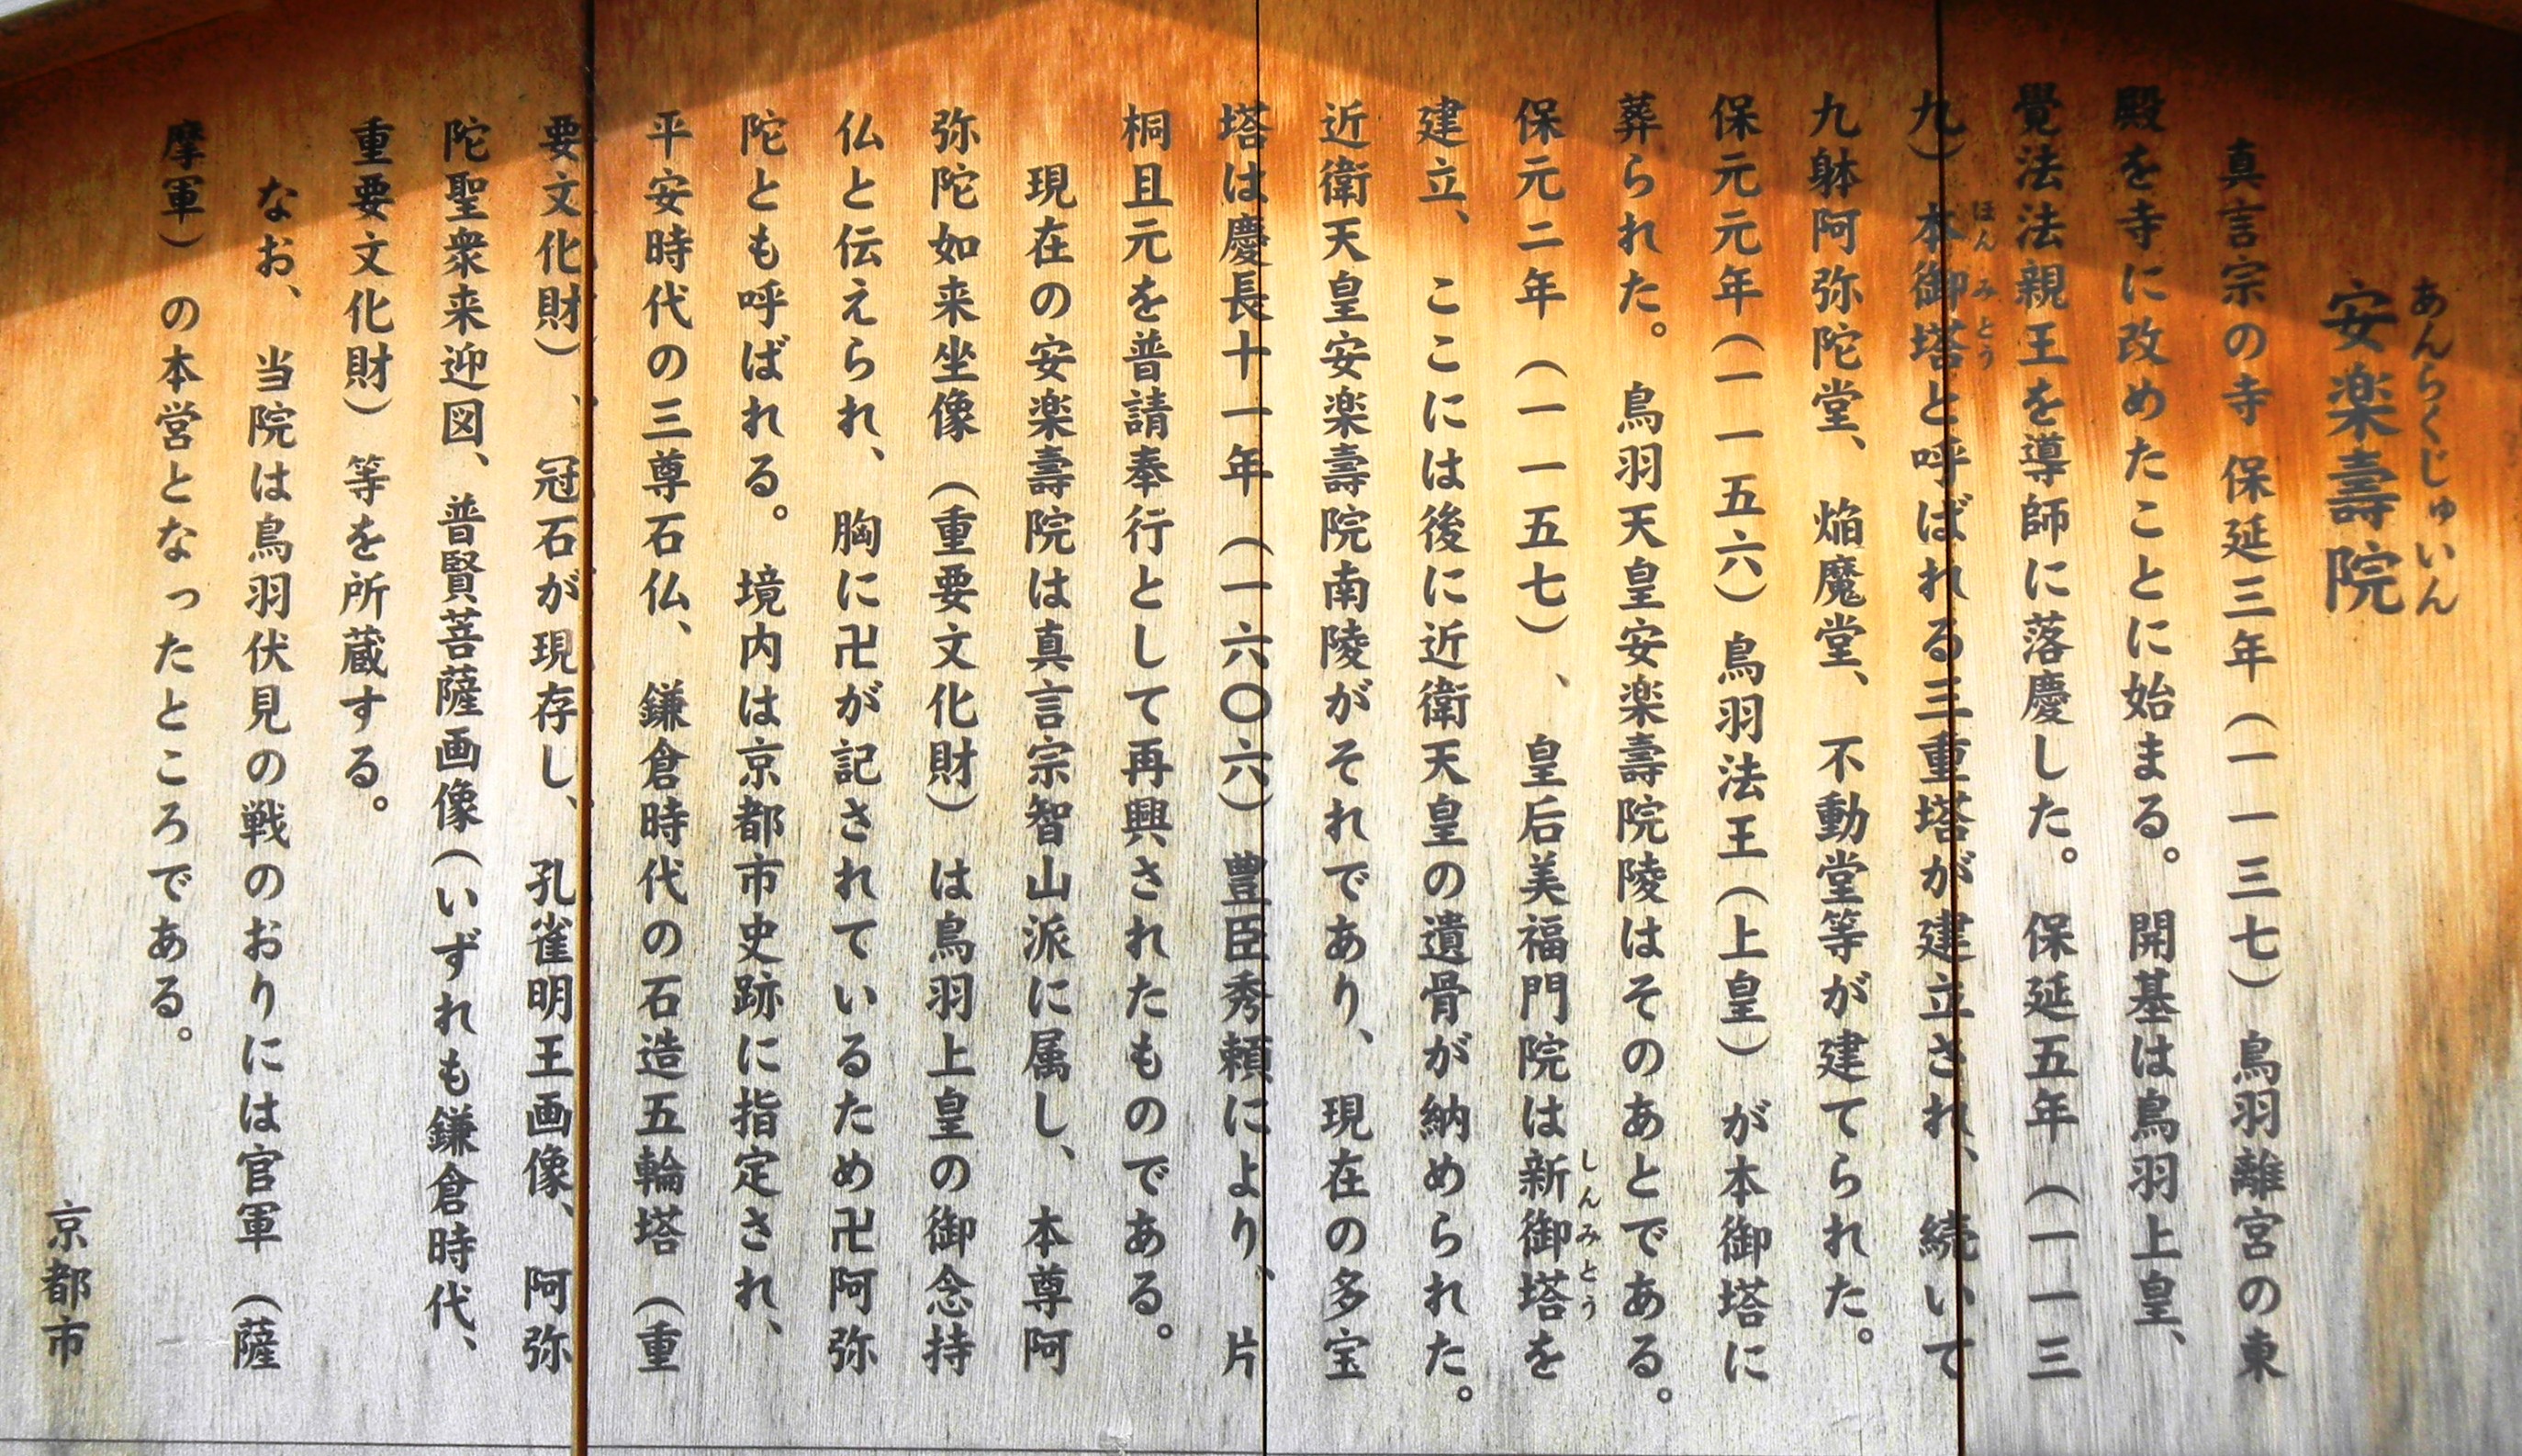 あんらくじゅいん
安楽壽院
真言宗の寺 保延三年（一一三七）鳥羽離宮の東
殿を寺に改めたことに始まる。開基は鳥羽上皇、
覺法法親王を導師に落慶した。保延五年（一一三
ほんみとう
九）本御塔と呼ばれる三重塔が建立され、続いて
九躰阿弥陀堂、焔魔堂、不動堂等が建てられた。
保元元年（一一五六）鳥羽法王（上皇）が本御塔に
葬られた。鳥羽天皇安楽壽院陵はそのあとである。
しんみとう
保元二年（一一五七）、皇后美福門院は新御塔を
建立、ここには後に近衛天皇の遺骨が納められた。
近衛天皇安楽壽院南陵がそれであり、現在の多宝
塔は慶長十一年（一六〇六）豊臣秀頼により、片
桐且元を普請奉行として再興されたものである。
現在の安楽壽院は真言宗智山派に属し、本尊阿
弥陀如来坐像（重要文化財）は鳥羽上皇の御念持
仏と伝えられ、胸に卍が記されているため卍阿弥
陀とも呼ばれる。境内は京都市史跡に指定され、
平安時代の三尊石仏、鎌倉時代の石造五輪塔（重
要文化財）、冠石が現存し、孔雀明王画像、阿弥
陀聖衆来迎図、普賢菩薩画像（いずれも鎌倉時代、
重要文化財）等を所蔵する。
なお、当院は鳥羽伏見の戦のおりには官軍（薩
摩軍）の本営となったところである。
京都市